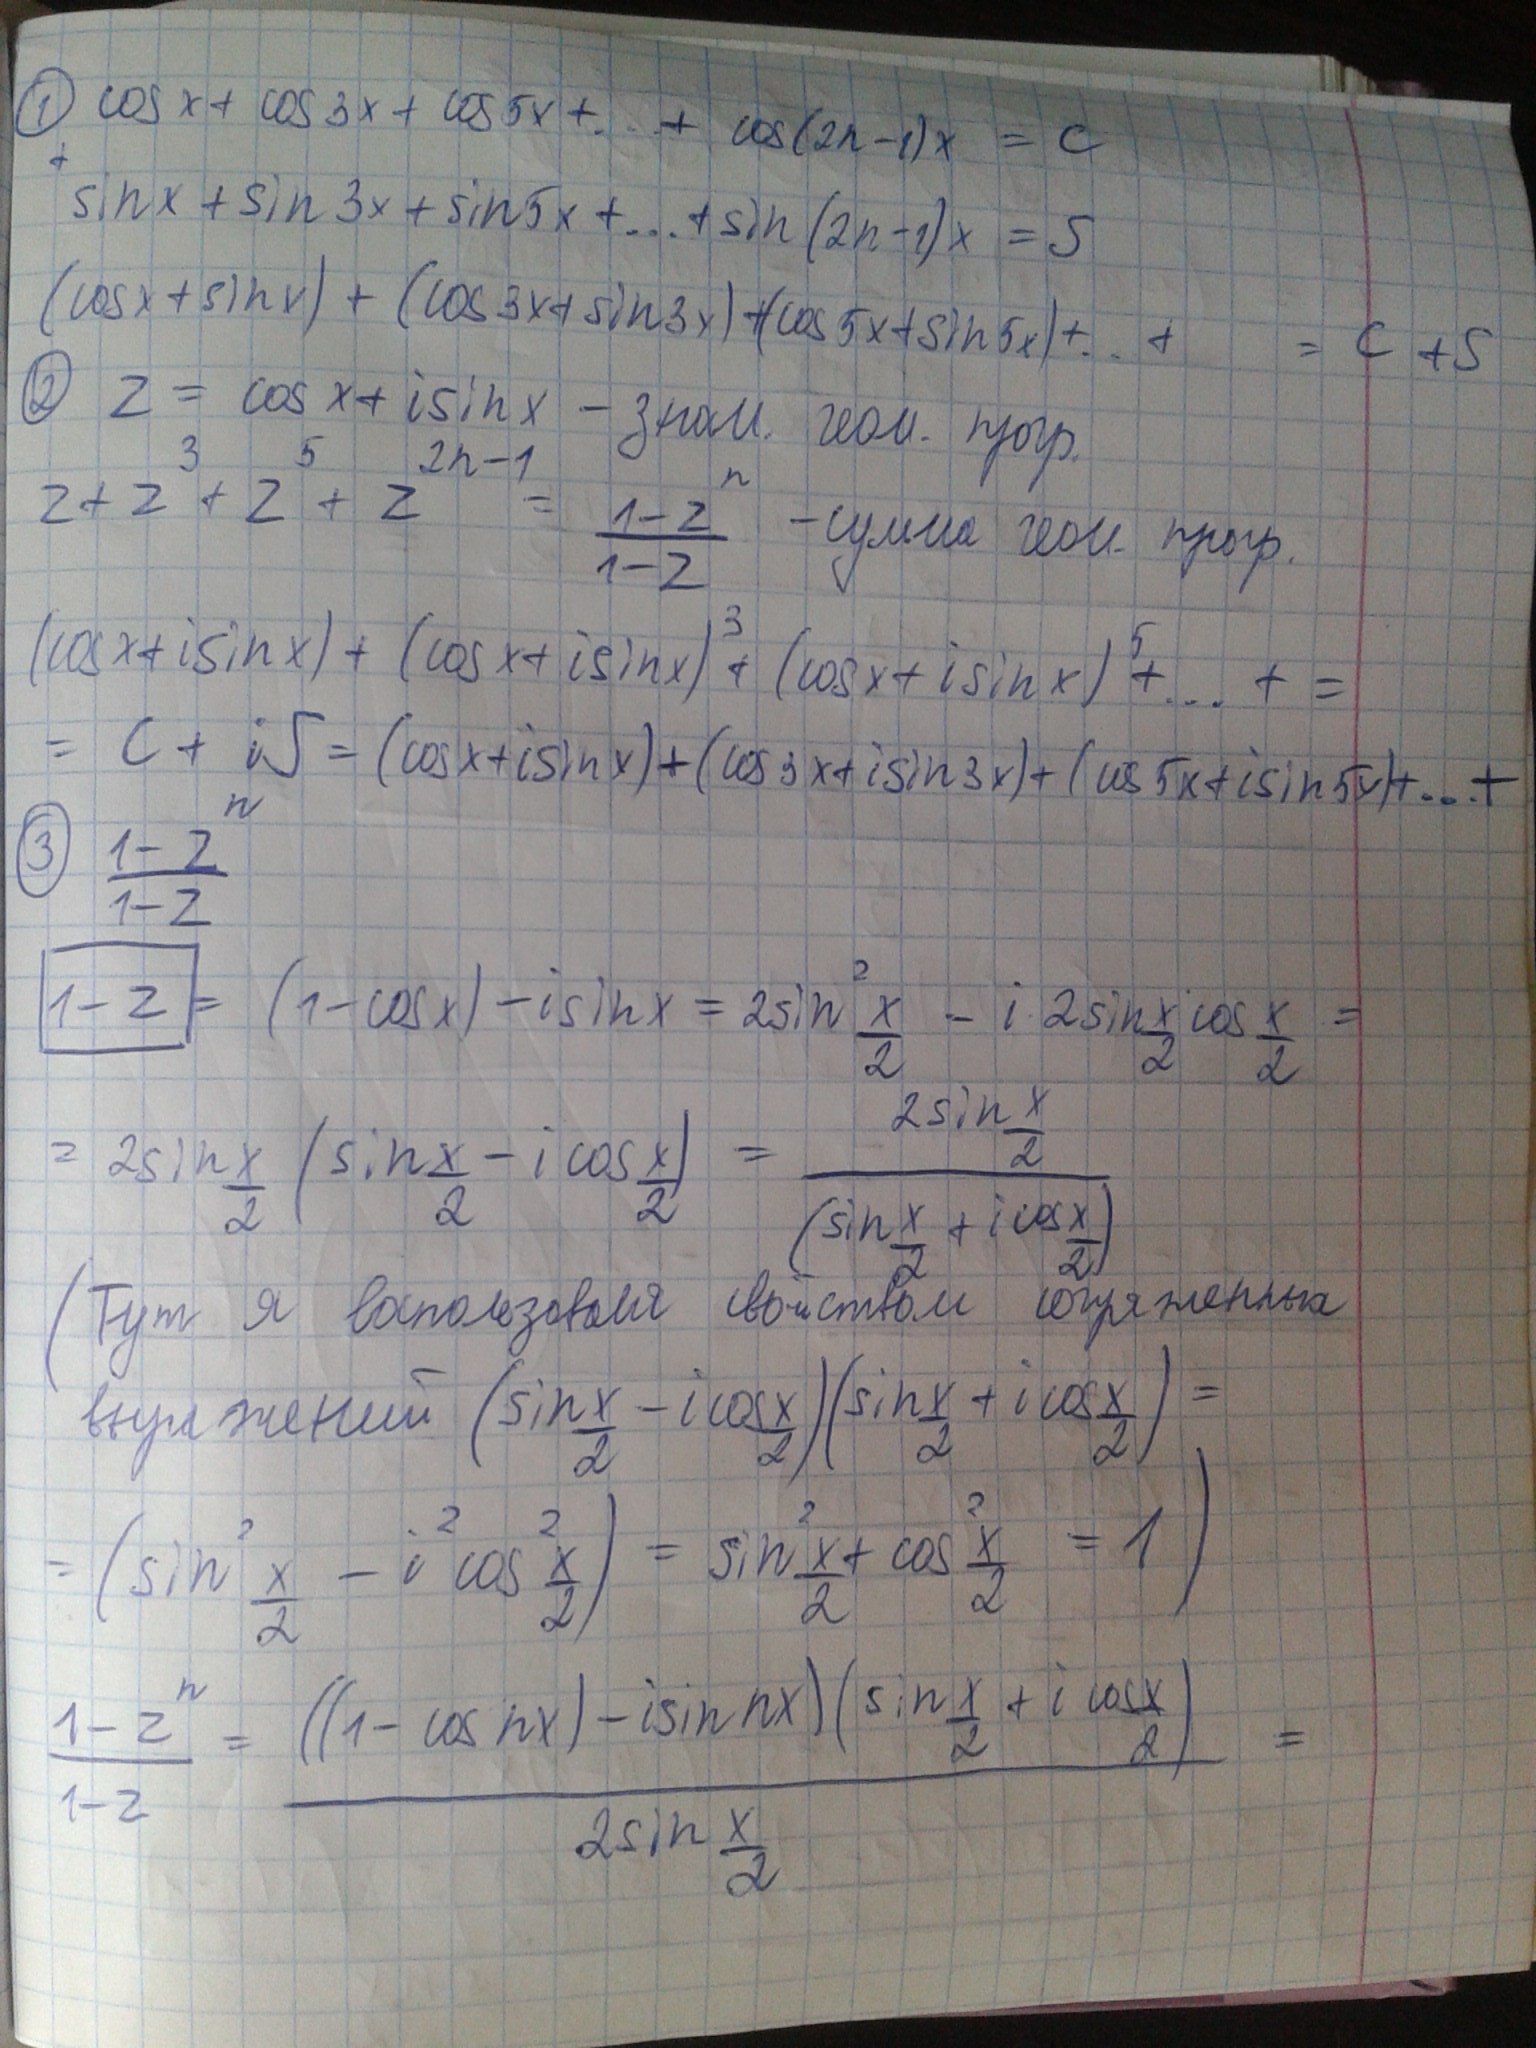 ① cos x + cos 3x + cos 5x + ... + cos(2n-1)x = C
+
sin x + sin 3x + sin 5x + ... + sin(2n-1)x = S
(cos x + sin x) + (cos 3x + sin 3x) + (cos 5x + sin 5x) + ... + = C + S
② z = cos x + i sin x - знам. геом. прогр.
z + z³ + z⁵ + z²ⁿ⁻¹ = (1-zⁿ)/(1-z) - сумма геом. прогр.
(cos x + i sin x) + (cos x + i sin x)³ + (cos x + i sin x)⁵ + ... + =
= C + iS = (cos x + i sin x) + (cos 3x + i sin 3x) + (cos 5x + i sin 5x) + ... +
③ (1-zⁿ)/(1-z)
1-z = (1-cos x) - i sin x = 2sin² x/2 - i·2sin x/2 cos x/2 =
= 2sin x/2 (sin x/2 - i cos x/2) = 2sin x/2 / (sin x/2 + i cos x/2)
(Тут я воспользовался свойством сопряженных
выражений (sin x/2 - i cos x/2)(sin x/2 + i cos x/2) =
= (sin² x/2 - i² cos² x/2) = sin² x/2 + cos² x/2 = 1)
(1-zⁿ)/(1-z) = ((1-cos nx) - i sin nx)(sin x/2 + i cos x/2) / 2sin x/2 =